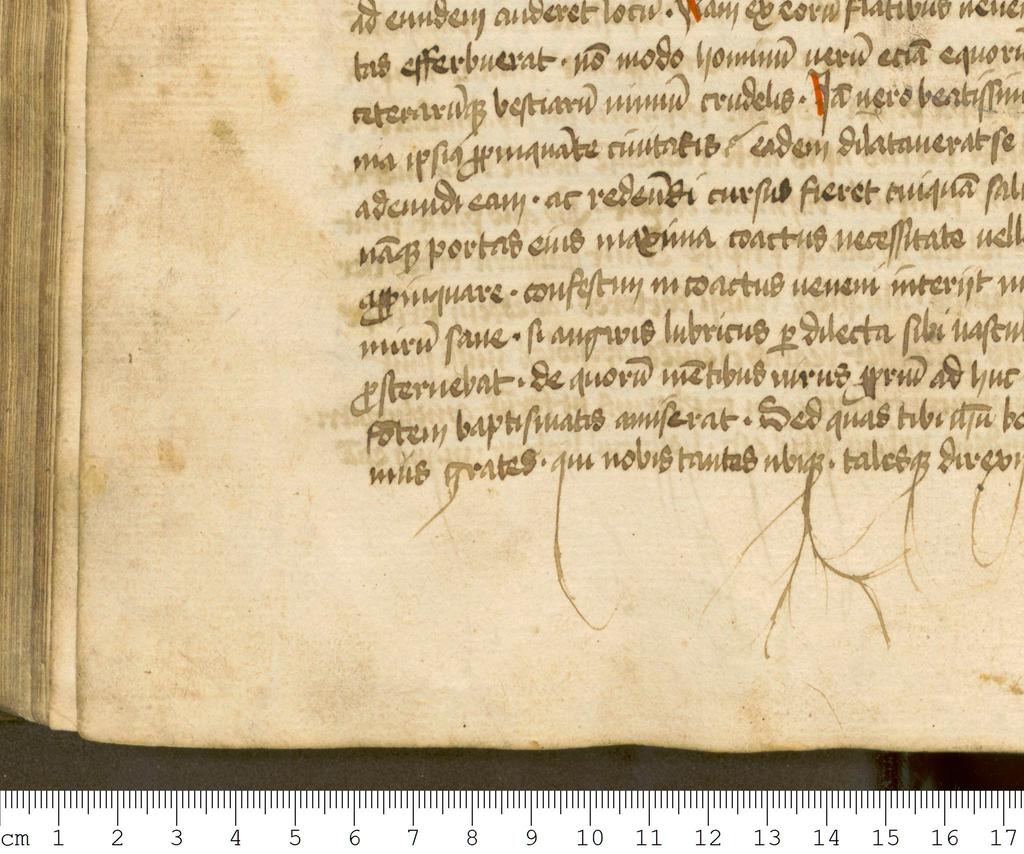 ad eundem auderet locū . Nam ex eorū flatibus uenen
tas efferbuerat . nō modo hominū uerū eciā equorū
ceterarūqꝫ bestiarū nimiū crudelis . Iā uero beatissim
ma ipsiꝰ ꝓpinquāte ciuitatis / eadem dilatauerat se
adeundi eam . ac redeūdi cursus fieret cuiquā sal
nāqꝫ portas eius maxima coactus necessitate uell
aꝓpinquare . confestim incoactus ueneni interijt
mirū sane . si anguis lubricus ꝑ dilecta sibi uascul
ꝓsternebat . de quorū mētibus uirus ꝓpriū ad huc
fōtem baptismatis amiserat . Sed quas tibi
mus grates . qui nobis tantas ubiqꝫ . talesqꝫ
cm 1 2 3 4 5 6 7 8 9 10 11 12 13 14 15 16 17